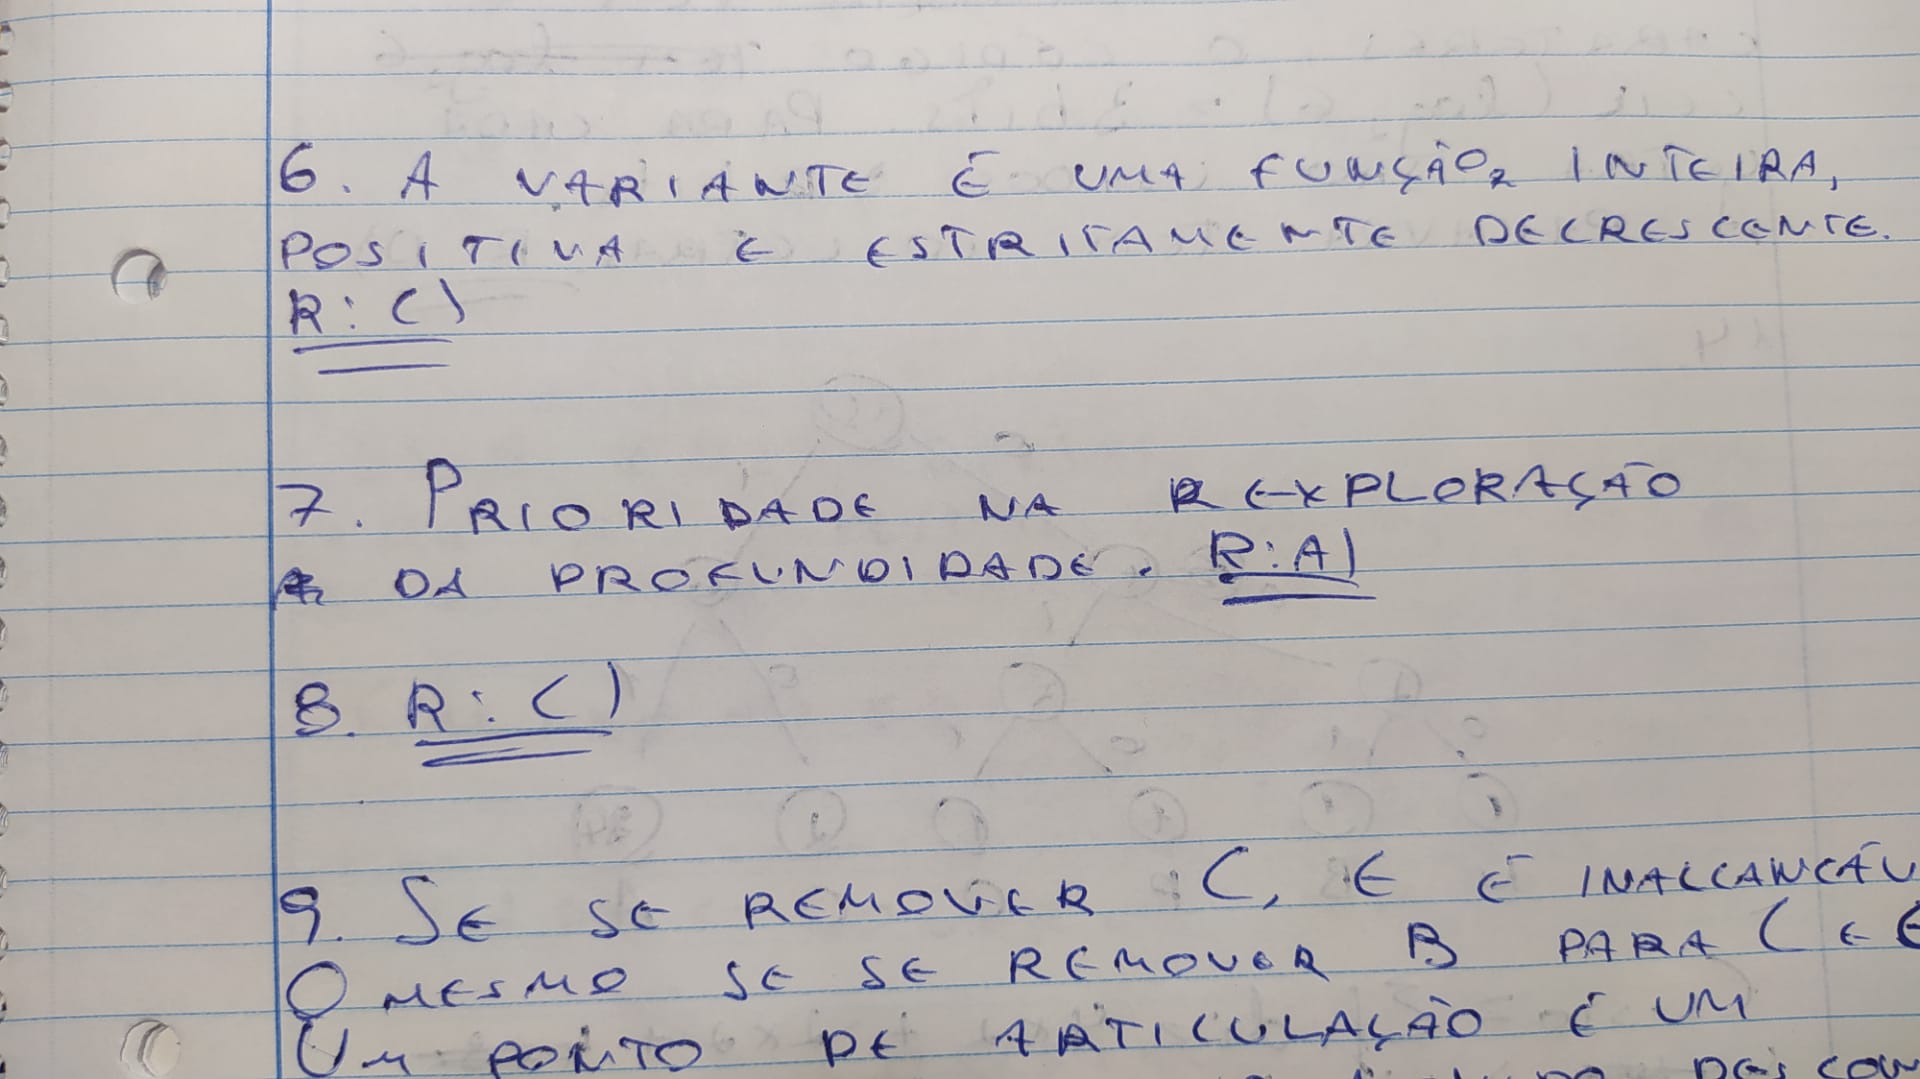 6. A VARIANTE É UMA FUNÇÃO, INTEIRA,
POSITIVA E ESTRITAMENTE DECRESCENTE.
R: C)
7. PRIORIDADE NA EXPLORAÇÃO
DA PROFUNDIDADE. R: A)
8. R: C)
9. SE SE REMOVER C, E É
O MESMO SE SE REMOVER B PARA C E E
UM PONTO DE ARTICULAÇÃO É UM